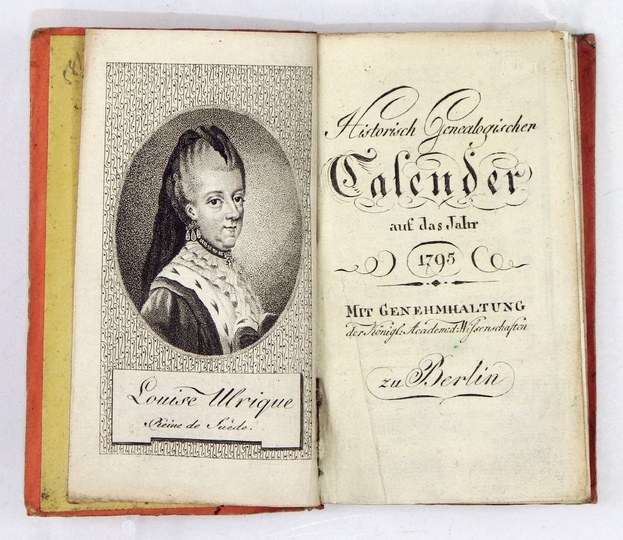 Louise Ulrique
Reine de Suède.
Historisch Genealogischer
Calender
auf das Jahr
1795
MIT GENEHMHALTUNG
der Königl: Academ: d: Wissenschaften
zu Berlin